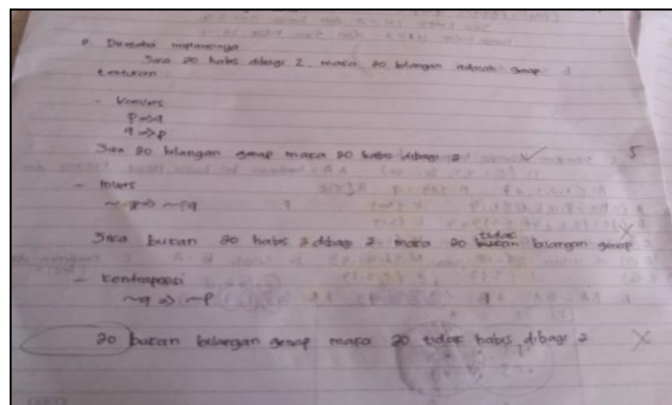 Diketahui implikasinya
Jika 20 habis dibagi 2 maka 20 bilangan adalah genap
tentukan
- Konvers
p ⇒ q
q ⇒ p
Jika 20 bilangan genap maka 20 habis dibagi 2 ✓ 5
- Invers
~p ⇒ ~q
tidak
Jika bukan 20 habis 2 dibagi 2 maka 20 bukan bilangan genap
- Kontraposisi
~q ⇒ ~p
20 bukan bilangan genap maka 20 tidak habis dibagi 2 X